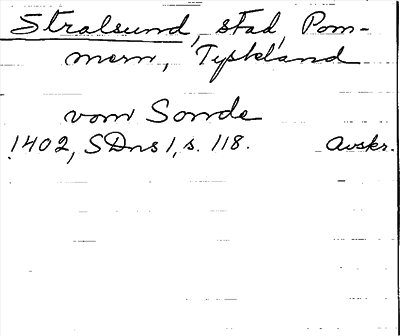 Stralsund, stad, Pom-
mern, Tyskland
vom Sonde
1402, SDns 1, s. 118. Avskr.